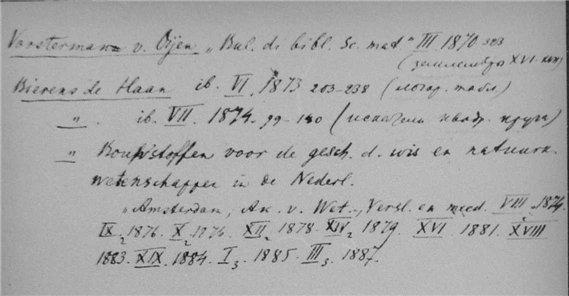 Vorsterman v. Oijen „Bul. di bibl. Sc. mat“ III 1870 323
(землемѣры XVI
Bierens de Haan ib. VI, 1873 203-238 (логар. табл)
„ . ib. VII. 1874. 99-140 (искатели квадр. круга)
„ Bouwstoffen voor de gesch. d. wis en natuurk.
wetenschappen in de Nederl.
„Amsterdam, Ak. v. Wet., Versl. en med. VIII 1874.
IX 2 1876. X 2 1876. XII 2 1878. XIV 2 1879. XVI 1881. XVIII
1883. XIX. 1884. I 3. 1885. III 3. 1887.